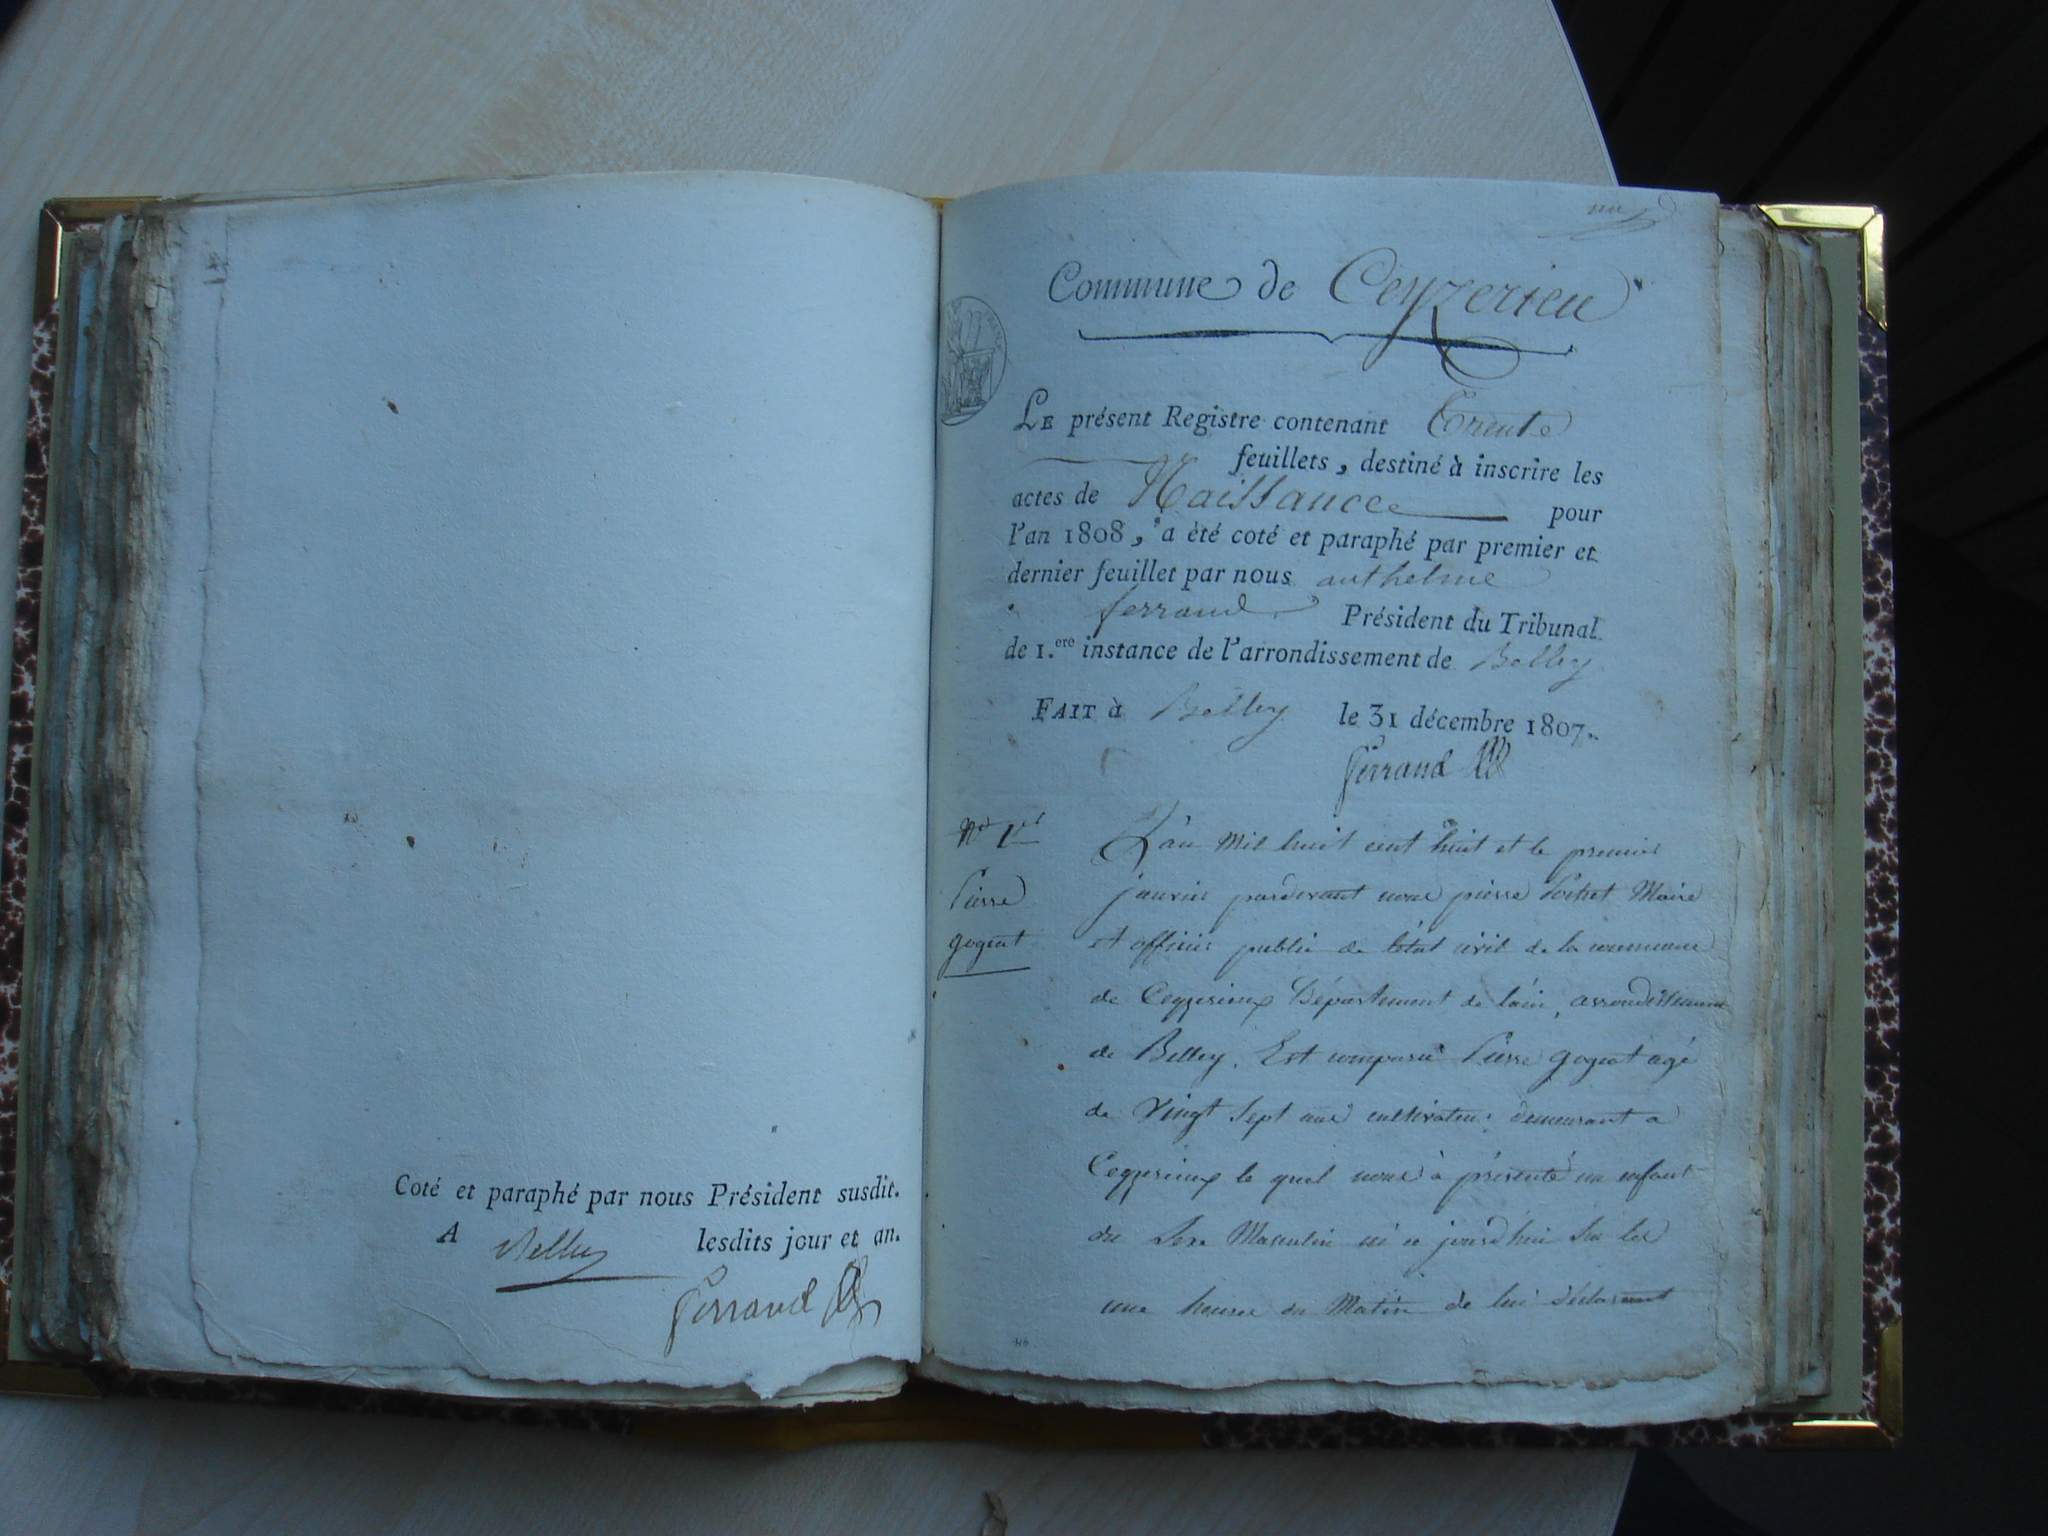 Coté et paraphé par nous Président susdit.
A Belley lesdits jour et an.
Ferrand
un
Commune de Ceyzerieu
LE présent Registre contenant Trente
feuillets, destiné à inscrire les
actes de Naissance pour
l'an 1808, a été coté et paraphé par premier et
dernier feuillet par nous anthelme
ferrand Président du Tribunal
de 1.ere instance de l'arrondissement de Belley
FAIT à Belley le 31 décembre 1807.
Ferrand
N.o 1er
Pierre
goguet
L'an mil huit cent huit et le premier
janvier pardevant nous pierre Maire
et officier public de létat civil de la commune
de Ceyzerieux Département de lain, arrondissement
de Belley. Est comparu Pierre goguet agé
de vingt sept ans cultivateur demeurant a
Ceyzerieux le quel nous à présenté un enfant
du Sexe Masculin né ce jourd'hui sur les
une heures du Matin de lui déclarant